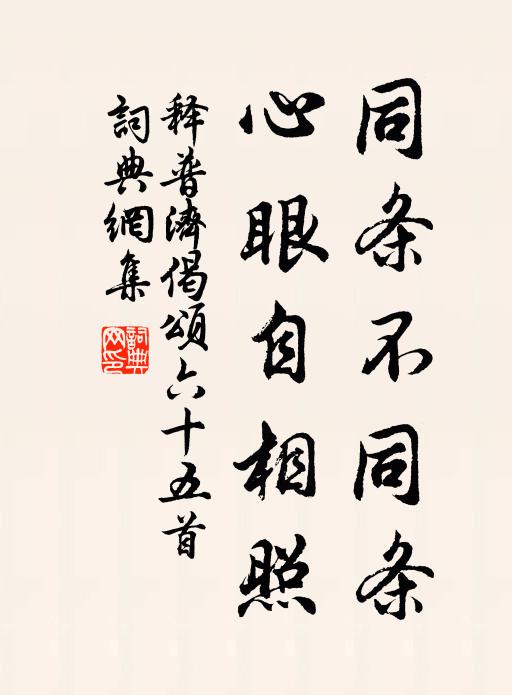 同条不同条
心眼自相照
释普濟偈頌六十五首
詞典網集
詞典網印